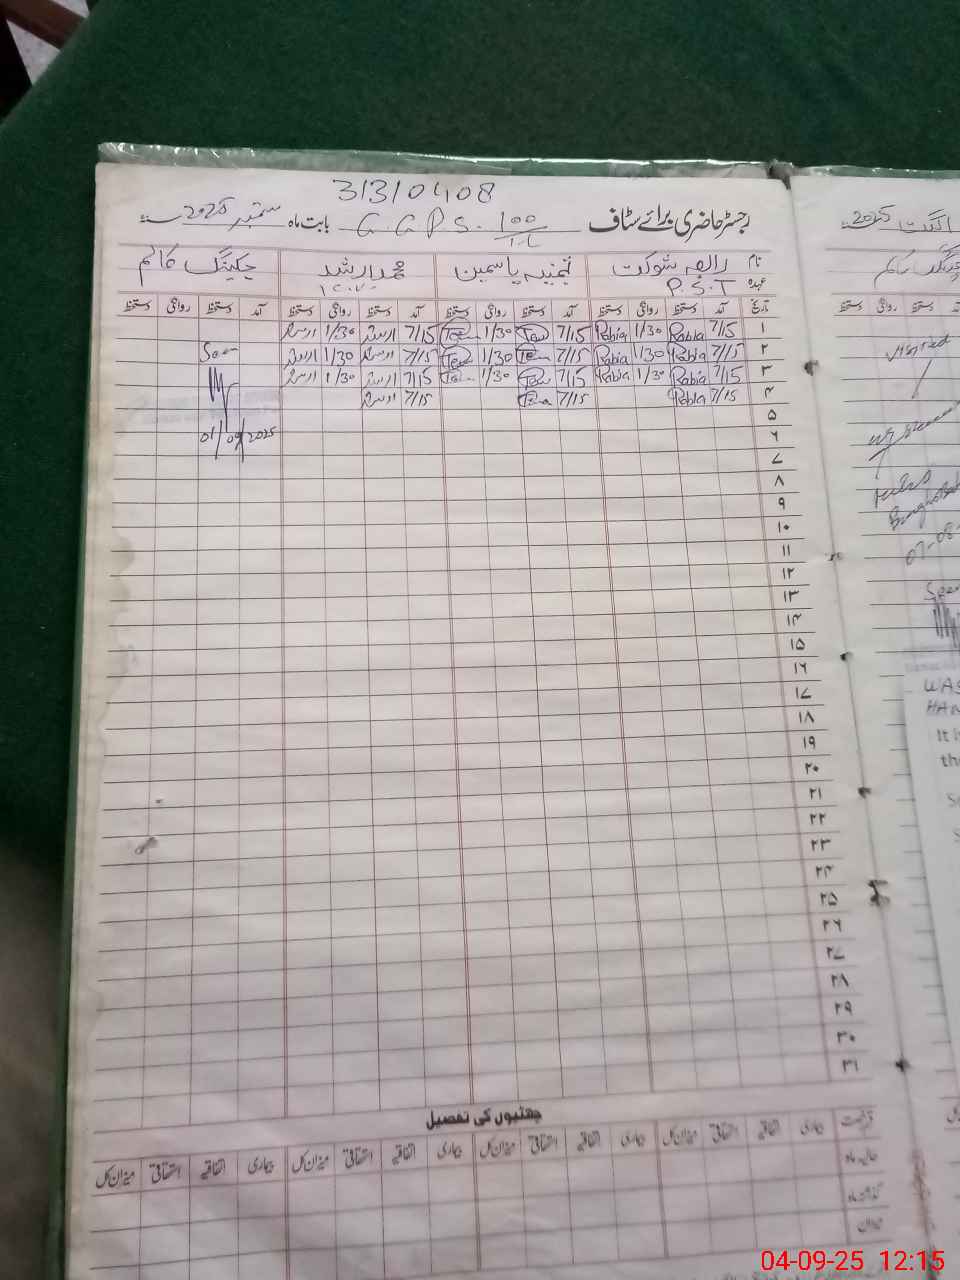 31310408
رجسٹر حاضری برائے سٹاف G.G.P.S. 100 بابت ماہ ستمبر 2025
نام رابعہ شوکت ثمینہ یاسمین محمد ارشد چیکینگ کالم
عہدہ P.S.T
تاریخ آمد دستخط روانگی دستخط آمد دستخط روانگی دستخط آمد دستخط روانگی دستخط آمد دستخط روانگی دستخط
۱ 7/15 Rabia 1/30 Rabia 7/15 1/30 7/15 ارشد 1/30 ارشد
۲ 7/15 Rabia 1/30 Rabia 7/15 1/30 7/15 ارشد 1/30 ارشد Seen
۳ 7/15 Rabia 1/30 Rabia 7/15 1/30 7/15 ارشد 1/30 ارشد
۴ 7/15 Rabia 7/15 7/15 ارشد
۵
۶ 01/09/2025
۷
۸
۹
۱۰
۱۱
۱۲
۱۳
۱۴
۱۵
۱۶
۱۷
۱۸
۱۹
۲۰
۲۱
۲۲
۲۳
۲۴
۲۵
۲۶
۲۷
۲۸
۲۹
۳۰
۳۱
چھٹیوں کی تفصیل
بیماری اتفاقیہ استحقاقی میزان کل بیماری اتفاقیہ استحقاقی میزان کل بیماری اتفاقیہ استحقاقی میزان کل
حالیہ ماہ
گذشتہ ماہ
میزان
اگست 2025
Visited
07-08-
Seen
WAS
HAN
It i
the
04-09-25 12:15